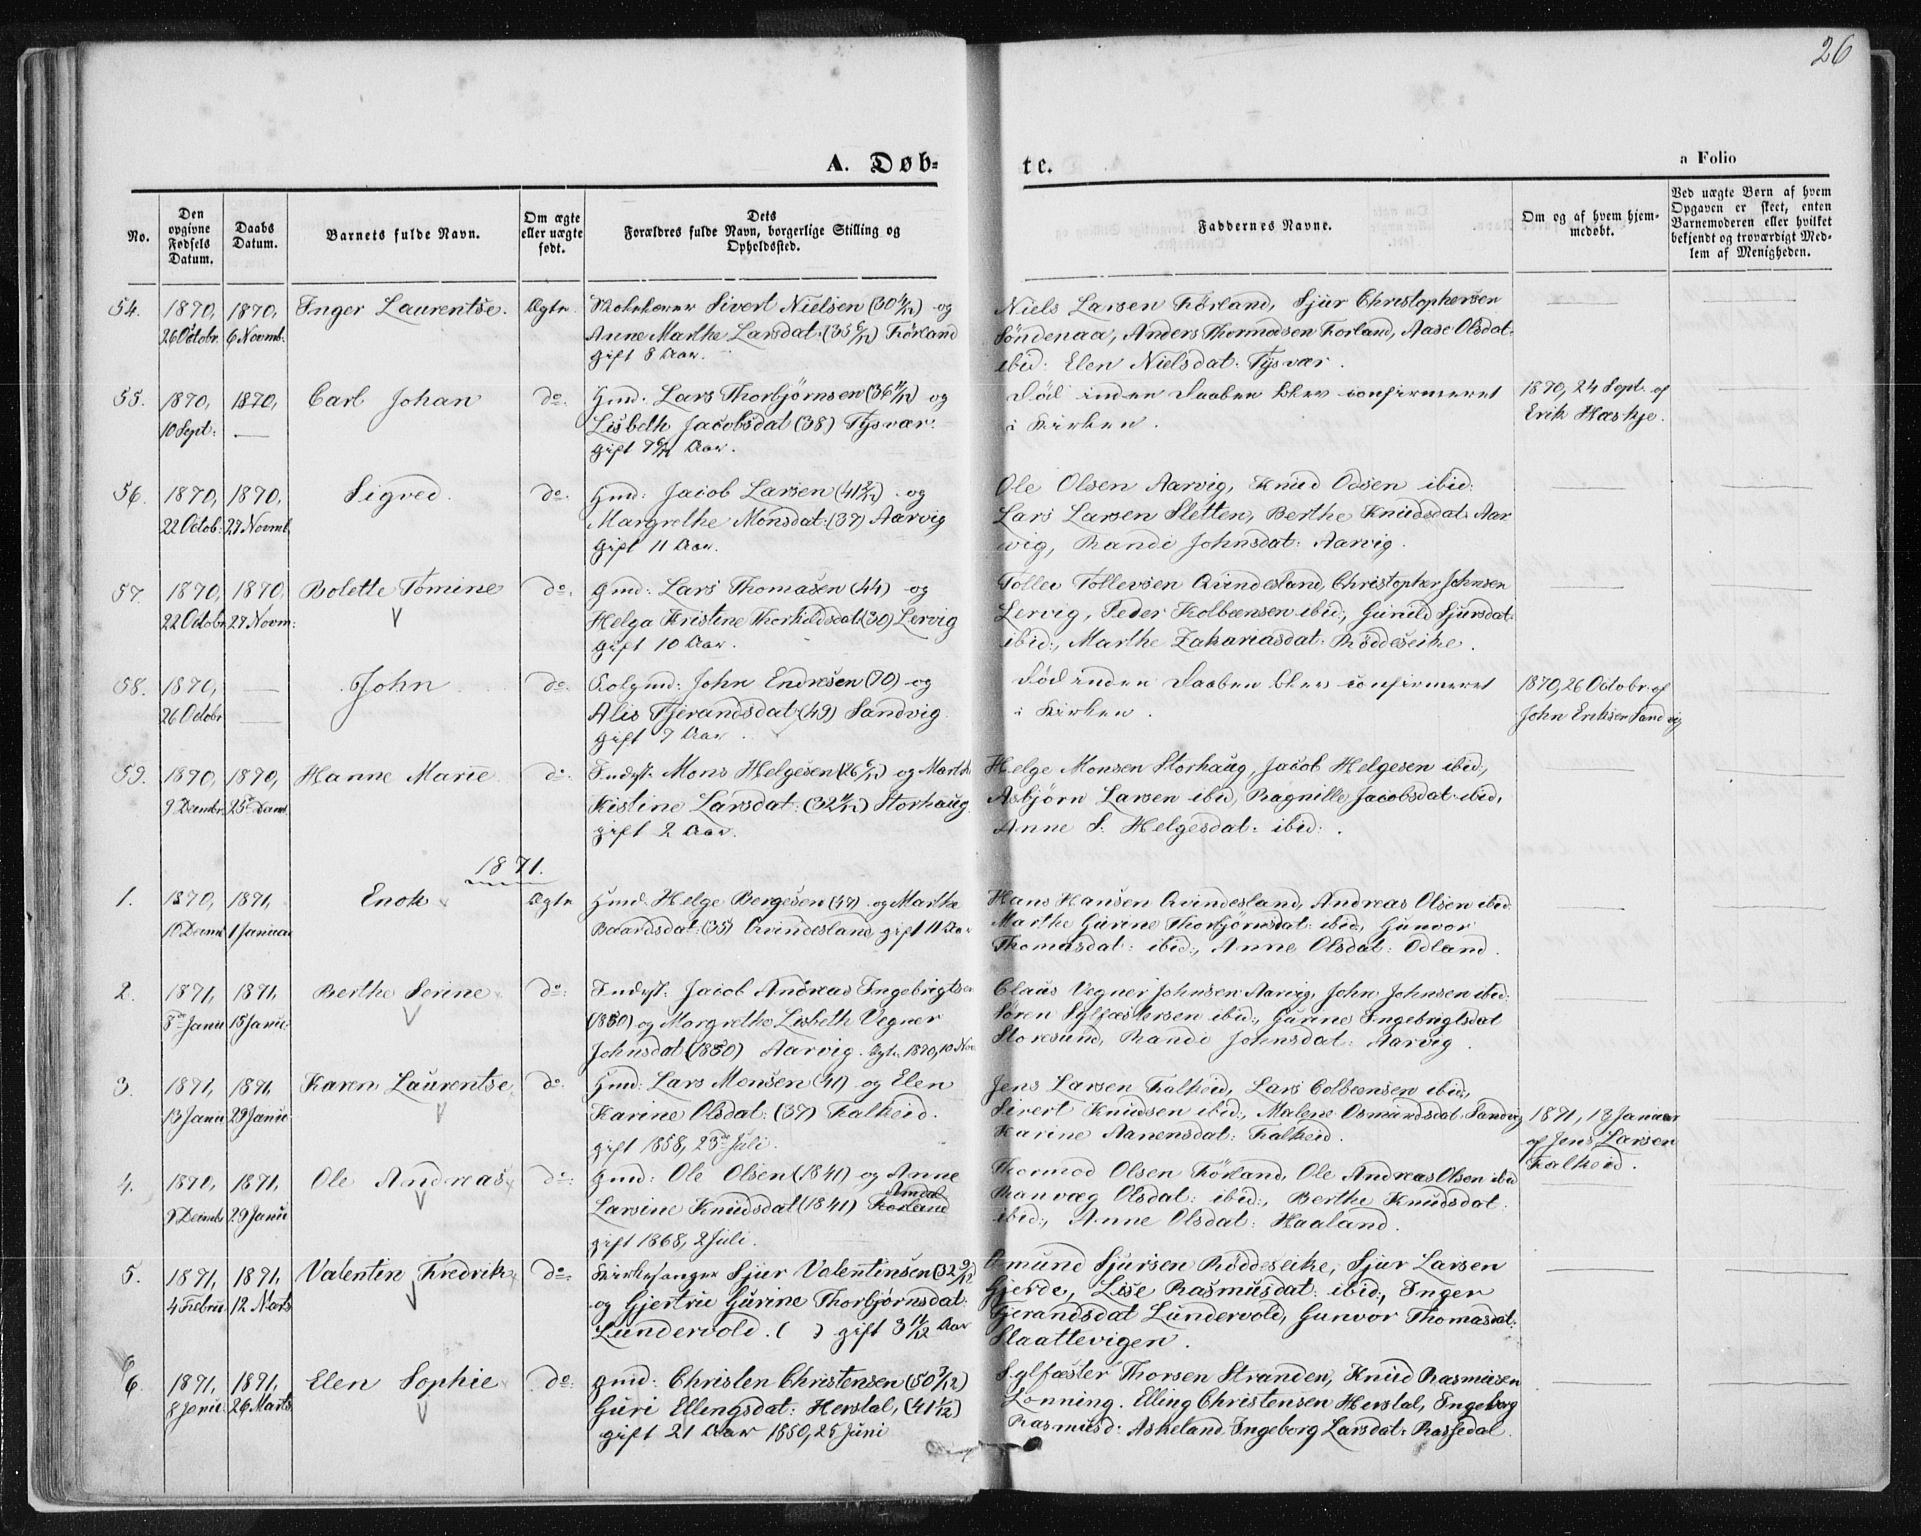 26
A. Døb-
te.
a Folio
No.
Den opgivne Fødsels Datum.
Daabs Datum.
Barnets fulde Navn.
Om ægte eller uægte født.
Dets Forældres fulde Navn, borgerlige Stilling og Opholdssted.
Faddernes Navne.
Om og af hvem hjemmedøbt.
Ved uægte Børn af hvem Opgaven er skeet, enten Barnemoderen eller hvilket bekjendt og troværdigt Medlem af Menigheden.
54. 1870, 26 Octobr. 1870, 6 Novmb. Inger Laurentse. Ægte
Sivert Nielsen (30 4/12) og
Anne Marthe Larsdat: (35 6/12) Förland
gift 8 Aar.
Niels Larsen Förland, Sjur Christophersen
Söndenaa, Anders Thormodsen Forland, Aase Olsdat:
ibid: Elen Nielsdat: Tysvær.
55. 1870, 10 Sept: 1870, Carl Johan do.
Gmd: Lars Thorbjørnsen (36 11/12) og
Lisbeth Jacobsdat (38) Tysvær.
gift 7 6/12 Aar.
Död inden Daaben blev confirmeret
i Kirken.
1870, 24 Sept. af
Erik Hæskje.
56. 1870, 22 Octob: 1870, 27 Novmb. Sigved. do.
Gmd: Jacob Larsen (41 2/12) og
Margrethe Monsdat: (37) Aarvig
gift 11 Aar.
Ole Olsen Aarvig, Knud Odsen ibid:
Lars Larsen Sletten, Berthe Knudsdat: Aar
vig, Randi Johnsdat: Aarvig.
57. 1870, 22 Octobr 1870, 27 Novm: Bolette Tomine do.
Gmd: Lars Thomasen (44) og
Helga Kristine Thorkildsdat (30) Lervig
gift 10 Aar.
Tollev Tollevsen Qvindesland, Christopher Johnsen
Lervig, Peder Kolbeensen ibid:, Gunild Sjursdat:
ibid:, Marthe Zakariasdat: Röddeseike.
58. 1870, 26 Octobr John do.
Gmd: John Endresen (70) og
Alis Tjerandsdat: (49) Sandvig
gift 7 Aar.
Död inden Daaben blev confirmeret
i Kirken.
1870, 26 Octobr. af
John Eriksen Sandvig
59. 1870, 9 Decmbr 1870, 25 Decmb Hanne Marie do.
Indst. Mons Helgesen (26 6/12) og Marthe
Kistine Larsdat: (32 4/12) Storhaug.
gift 2 Aar.
Helge Monsen Storhaug, Jacob Helgesen ibid:,
Asbjörn Larsen ibid, Ragnille Jacobsdat: ibid,
Anne S. Helgesdat: ibid:.
1871.
1. 1870, 10 Decmb 1871, 1 Januar Enok Ægte
Gmd: Helge Bergesen (47) og Marthe
Baardsdat: (35) Qvindesland gift 11 Aar
Hans Hansen Qvindesland, Andreas Olsen ibid
Marthe Gurine Thorbjörnsdat: ibid, Gunvor
Thomasdat: ibid:, Anne Olsdat: Odland.
2. 1871, Janu 1871, 15 Janu: Berthe Serine do:
Indst: Jacob Andreas Ingebrigtsen
(1850) og Margrethe Lisbeth Vegner
Johnsdat (1850) Aarvig. Ægtv. 1870, 10 Nov
Claus Vegner Johnsen Aarvig, John Johnsen ibid:
Sören Sylfæstersen ibid:, Gurine Ingebrigtsdat
Storesund, Randi Johnsdat: Aarvig.
3. 1871, 13 Janu 1871, 29 Janu: Karen Laurentse do.
Gmd: Lars Monsen (41) og Elen
Karine Olsdat: (37) Falkeid.
gift 1858, 23de Juli.
Jens Larsen Falkeid, Lars Colbeensen ibid:,
Sivert Knudsen ibid:, Malene Osmundsdat: Sandvig
Karine Aanensdat: Falkeid.
1871, 13 Januar
af Jens Larsen
Falkeid.
4. 1870, 9 Decmb 1871, 29 Janu Ole Andreas do:
Gmd: Ole Olsen (1841) og Anne
Larsine Knudsdat (1841) Förland Amdal
gift 1868, 2 Juli.
Thormod Olsen Förland, Ole Andreas Olsen ibid
Ranvæg Olsdat: ibid:, Berthe Knudsdat:
ibid:, Anne Olsdat: Haaland.
5. 1871, 4 Febru 1871, 12 Marts Valentin Fredrik do:
Kirkesanger Sjur Valentinsen (32 9/12)
og Gjertru Gurine Thorbjørnsdat:
Lundervold. ( ) gift 3 11/12 Aar
Omund Sjursen Röddeseike, Sjur Larsen
Gjerde, Lise Rasmusdat: ibid:, Inger
Gjerandsdat Lundervold, Gunvor Thomasdat:
Slaattevigen.
6. 1871, 8 Janu: 1871, 26 Marts Elen Sophie do:
Gmd: Christen Christensen (50 3/12)
Guri Ellingsdat: Herstal, (41 1/12)
gift 21 Aar 1850, 25 Juni
Sylfæster Thorsen Stranden, Knud Rasmusen
Lonning. Elling Christensen Herstal, Ingeborg
Rasmusd: Askeland Ingeborg Larsdat: Rassedal.